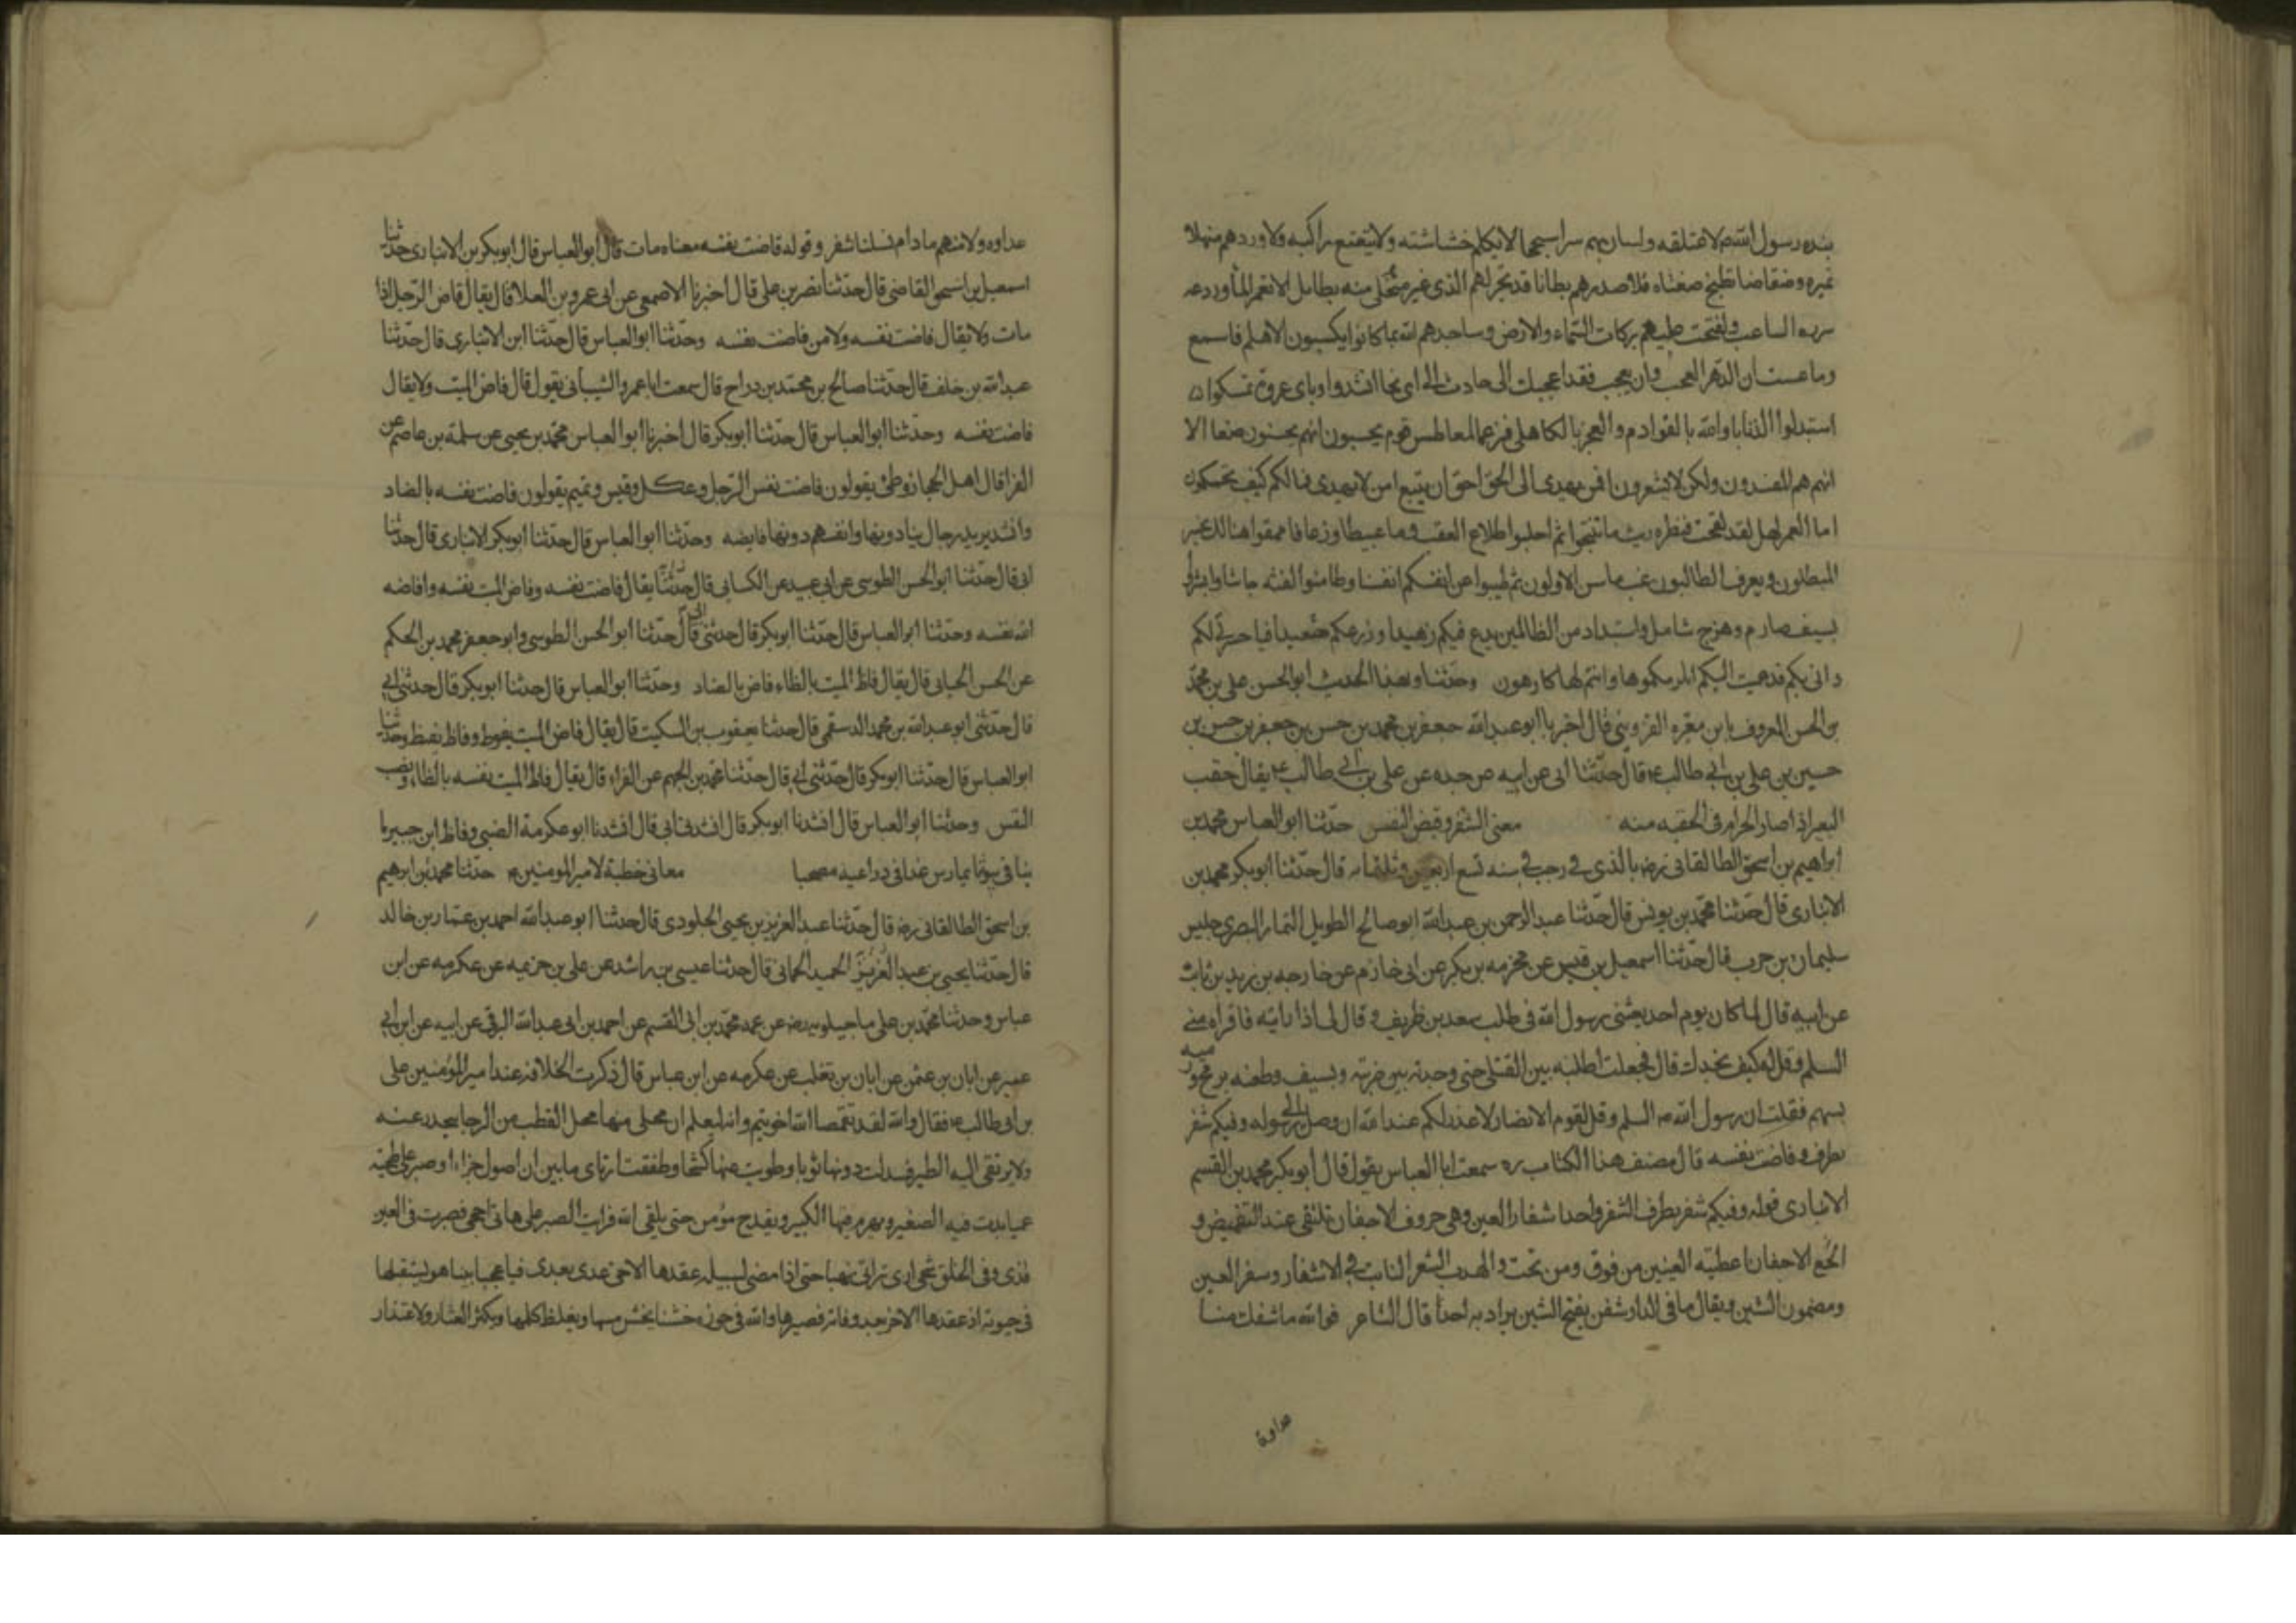 نبذه رسول الله ص لاعتلقه ولسار بهم سيرا سجحا لا يكلم خشاشته ولا يتعتع راكبه ولاوردهم منهلا
نميرا فضفاضا تطفح ضفتاه ولاصدرهم بطانا قد تحير لهم الذى غير متحل منه بطايل الا بغمر الماء وردعه
سورة الساعب ولفتحت عليهم بركات السماء والارض وساخذهم الله بما كانوا يكسبون الا هلم فاسمع
وما عشت اراك الدهر العجب وان تعجب فقد اعجبك الى حادث الى اى لجا استندوا وباى عروة تمسكوا
استبدلوا الذنابا والله بالقوادم والعجز بالكاهل فرغما لمعاطس قوم يحسبون انهم يحسنون صنعا الا
انهم هم المفسدون ولكن لا يشعرون افمن يهدى الى الحق احق ان يتبع امن لا يهدى فما لكم كيف تحكمون
اما لعمر الهك لقد لقحت فنظرة ريث ما تنتجوا ثم احلبوا طلاع القعب دما عبيطا وزعافا ممقرا هنالك يخسر
المبطلون ويعرف الطالبون غب ما سن الاولون ثم طيبوا عن انفسكم انفسا وطامنوا للفتنه جاشا وابشروا
بسيف صارم وهرج شامل واستبداد من الظالمين يدع فيكم زهيدا وزرعكم حصيدا فيا حسرتى لكم
وانى بكم قد عميت عليكم انلزمكموها وانتم لها كارهون وحدثنا وبهذا الحديث ابو الحسن على بن محمد
بن الحسن المعروف بابن مقبره القزوينى قال اخبرنا ابو عبدالله جعفر بن محمد بن حسن بن جعفر بن حسن بن
حسين بن على بن ابى طالب ع قال حدثنا ابى عن ابيه عن جده عن على بن ابى طالب ع يقال حقب
البعير اذا صار الحزام فى الحقبه منه معنى الشفر وقبض النفس حدثنا ابو العباس محمد بن
ابراهيم بن اسحق الطالقانى رضه بالذى فى رجب فى سنه تسع اربعين وثلثمايه قال حدثنا ابوبكر محمد بن
الانبارى قال حدثنا محمد بن يونس قال حدثنا عبد الرحمن بن عبدالله ابو صالح الطويل التمار البصرى جليس
سليمان بن حرب قال حدثنا اسمعيل بن قيس عن مخرمه بن بكر عن ابى خازم عن خارجه بن زيد بن ثابت
عن ابيه قال لما كان يوم احد بعثنى رسول الله فى طلب سعد بن ظريف وقال لى اذا رايته فاقراه منى
السلم وقل له كيف تجدك قال فجعلت اطلبه بين القتلى حتى وجدته بين ضربة بسيف وطعنه برمح ورميه
بسهم فقلت ان رسول الله ص السلم وقل لقوم الانصار لا عذر لكم عند الله ان وصل الى رسوله وفيكم شفر
يطرف وفاضت نفسه قال مصنف هذا الكتاب ره سمعت ابا العباس يقول قال ابوبكر محمد بن القسم
الانبارى قوله وفيكم شفر يطرف الشفر واحد اشفار العين وهى حروف الاجفان تلتقى عند التغميض و
الجمع الاجفان اغطيه العينين من فوق ومن تحت والهدب الشعر النابت فى الاشفار وسفر العين
ومضمون الشين ويقال ما فى الدار شفر بفتح الشين يراد به احدا قال الشاعر فوالله ما تنفك منا
عداوة
عداوه ولا منهم مادام من نسلنا شفر وقوله فاضت نفسه معناه مات قال ابو العباس قال ابوبكر بن الانبارى حدثنا
اسمعيل بن اسحق القاضى قال حدثنا نصر بن على قال اخبرنا الاصمعى عن ابى عمرو بن العلا قال يقال فاض الرجل اذا
مات ولا يقال فاضت نفسه ولا من فاضت نفسه وحدثنا ابو العباس قال حدثنا ابن الانبارى قال حدثنا
عبدالله بن خلف قال حدثنا صالح بن محمد بن دراح قال سمعت ابا عمرو الشيبانى يقول قال فاض الميت ولا يقال
فاضت نفسه وحدثنا ابو العباس قال حدثنا ابوبكر قال اخبرنا ابو العباس محمد بن يحيى عن سلمة بن عاصم عن
الفرا قال اهل الحجاز وطى يقولون فاضت نفس الرجل وعكل وقيس وتميم يقولون فاضت نفسه بالضاد
وانشد يريد رجال ينادونها وانفسهم دونها فايضه وحدثنا ابو العباس قال حدثنا ابوبكر الانبارى قال حدثنا
ابى قال حدثنا ابو الحسن الطوسى عن ابى عبيد عن الكسانى قال يقال فاضت نفسه وفاض الميت نفسه وافاضه
الله نفسه وحدثنا ابو العباس قال حدثنا ابوبكر قال حدثنى ابى قال حدثنا ابو الحسن الطوسى وابو جعفر محمد بن الحكم
عن الحسن الحيانى قال يقال فاظ الميت بالظاء فاض بالضاد وحدثنا ابو العباس قال حدثنا ابوبكر قال حدثنى ابى
قال حدثنى ابو عبدالله بن محمد الدسقى قال حدثنا يعقوب بن السكيت قال يقال فاض الميت يفوظ وفاظ يفيظ وحدثنا
ابو العباس قال حدثنا ابوبكر قال حدثنى ابى قال حدثنا محمد بن الجهم عن الفراء قال يقال فاظ الميت نفسه بالظاء ونصب
النفس وحدثنا ابو العباس قال انشدنا ابوبكر قال انشدنى ابى قال انشدنا ابو عكرمة الضبى وفاظ ابن
معانى خطبة لامير المومنين ع حدثنا محمد بن ابرهيم
بن اسحق الطالقانى رضه قال حدثنا عبد العزيز بن يحيى الجلودى قال حدثنا ابو عبدالله احمد بن عمار بن خالد
قال حدثنا يحيى بن عبد الحميد الحمانى قال حدثنا عيسى بن راشد عن على بن حزيمه عن عكرمه عن ابن
عباس وحدثنا محمد بن على ماجيلويه رضه عن عمه محمد بن ابى القسم عن احمد بن ابى عبدالله البرقى عن ابيه عن ابن ابى
عمير عن ابان بن عثمن عن ابان بن تغلب عن عكرمه عن ابن عباس قال ذكرت الخلافه عند امير المؤمنين على
بن ابى طالب ع فقال والله لقد تقمصها اخوتيم وانه ليعلم ان محلى منها محل القطب من الرحا ينحدر عنه
ولا يرتقى اليه الطير فسدلت دونها ثوبا وطويت عنها كشحا وطفقت ارتاى ما بين ان اصول جزاء او صبر على طخيه
عميا يشب فيه الصغير ويهرم فيها الكبير ويقدح مؤمن حتى يلقى الله فرايت الصبر على هاتى احجى فصبرت فى العين
قذى وفى الحلق شجى ارى تراثى نهبا حتى اذا مضى لسبيله عقدها لاخى عدى بعدى فيا عجبا بينا هو يستقيلها
فى حيوته اذ عقدها لاخر بعد وفاته فصيرها والله فى حوزه خشنا يخشن مسها ويغلظ كلمها ويكثر العثار والاعتذار